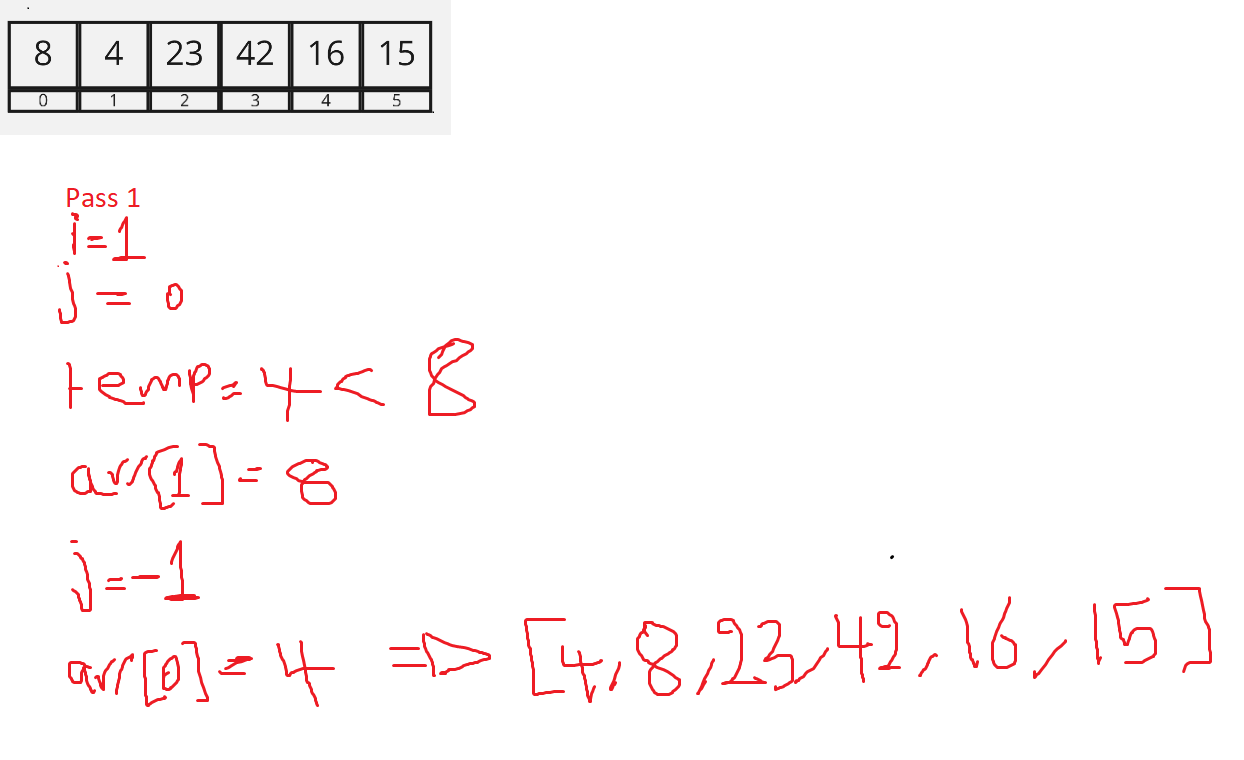 8 4 23 42 16 15
0 1 2 3 4 5
Pass 1
i=1
j = 0
temp = 4 < 8
arr[1] = 8
j = -1
arr[0] = 4 => [4, 8, 23, 42, 16, 15]